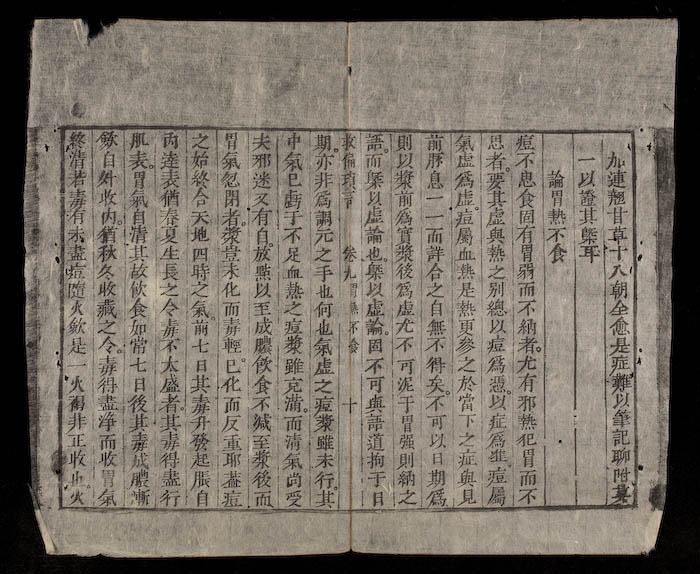 加連翹甘草十八朝全愈是症難以筆記聊附其
一以證其槩耳
論胃熱不食
痘不思食固有胃弱而不納者尤有邪熱犯胃而不
思者要其虛與熱之別總以痘為憑以症為準痘屬
氣虛為虛痘屬血熱是熱更參之於當下之症與見
前厯息一一而詳合之自無不得矣不可以日期為
則以漿前為實漿後為虛尤不可泥于胃强則納之
語而槩以虛論也槩以虛論固不可與語道拘于日
救偏瑣言 卷九胃熱不食 十
期亦非為調元之手也何也氣虛之痘漿雖未行其
中氣已虧于不足血熱之痘漿雖充滿而清氣尚受
夫邪迷又有自放點以至成膿飲食不減至漿後而
胃氣忽閉者漿豈未化而毒輕已化而反重耶葢痘
之始終合天地四時之氣前七日其毒升發起脹自
内達表猶春夏生長之令毒不太盛者其毒得盡行
肌表胃氣自清其故飲食如常七日後其毒成膿漸
斂自外收内猶秋冬收藏之令毒得盡净而收胃氣
終清若毒有未盡痘隨火斂是一火褐非正收也火